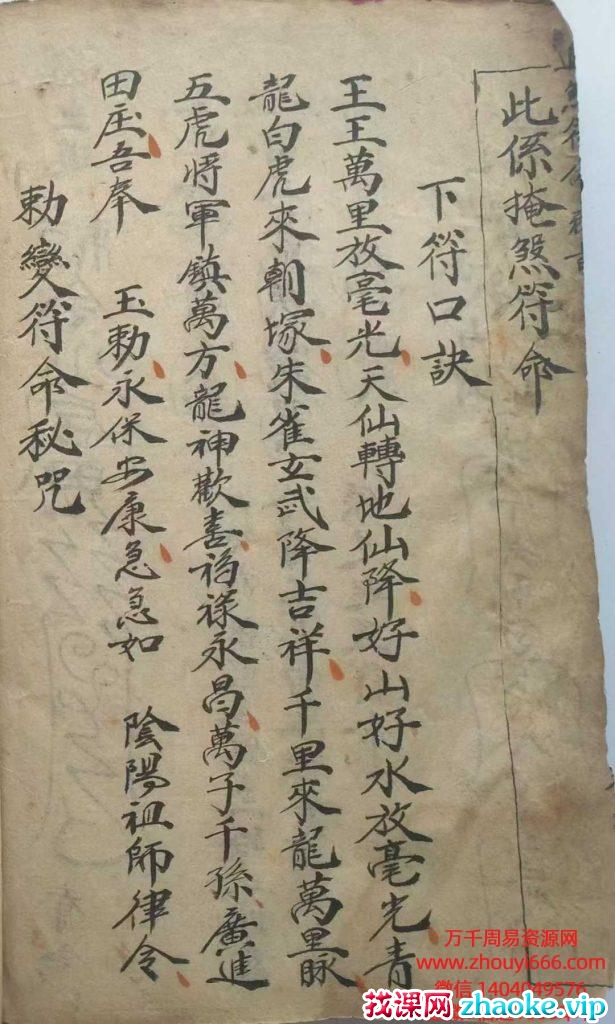 此係掩煞符命
下符口訣
王王萬里放毫光天仙轉地仙降好山好水放毫光青
龍白虎來朝塚朱雀玄武降吉祥千里來龍萬里脈
五虎將軍鎮萬方龍神歡喜福祿永昌萬子千孫廣進
田庄吾奉 玉勅永保安康急急如 陰陽祖師律令
勅變符命秘咒
万千周易资源网
www.zhouyi666.com
微信 1404049576
找课网zhaoke.vip